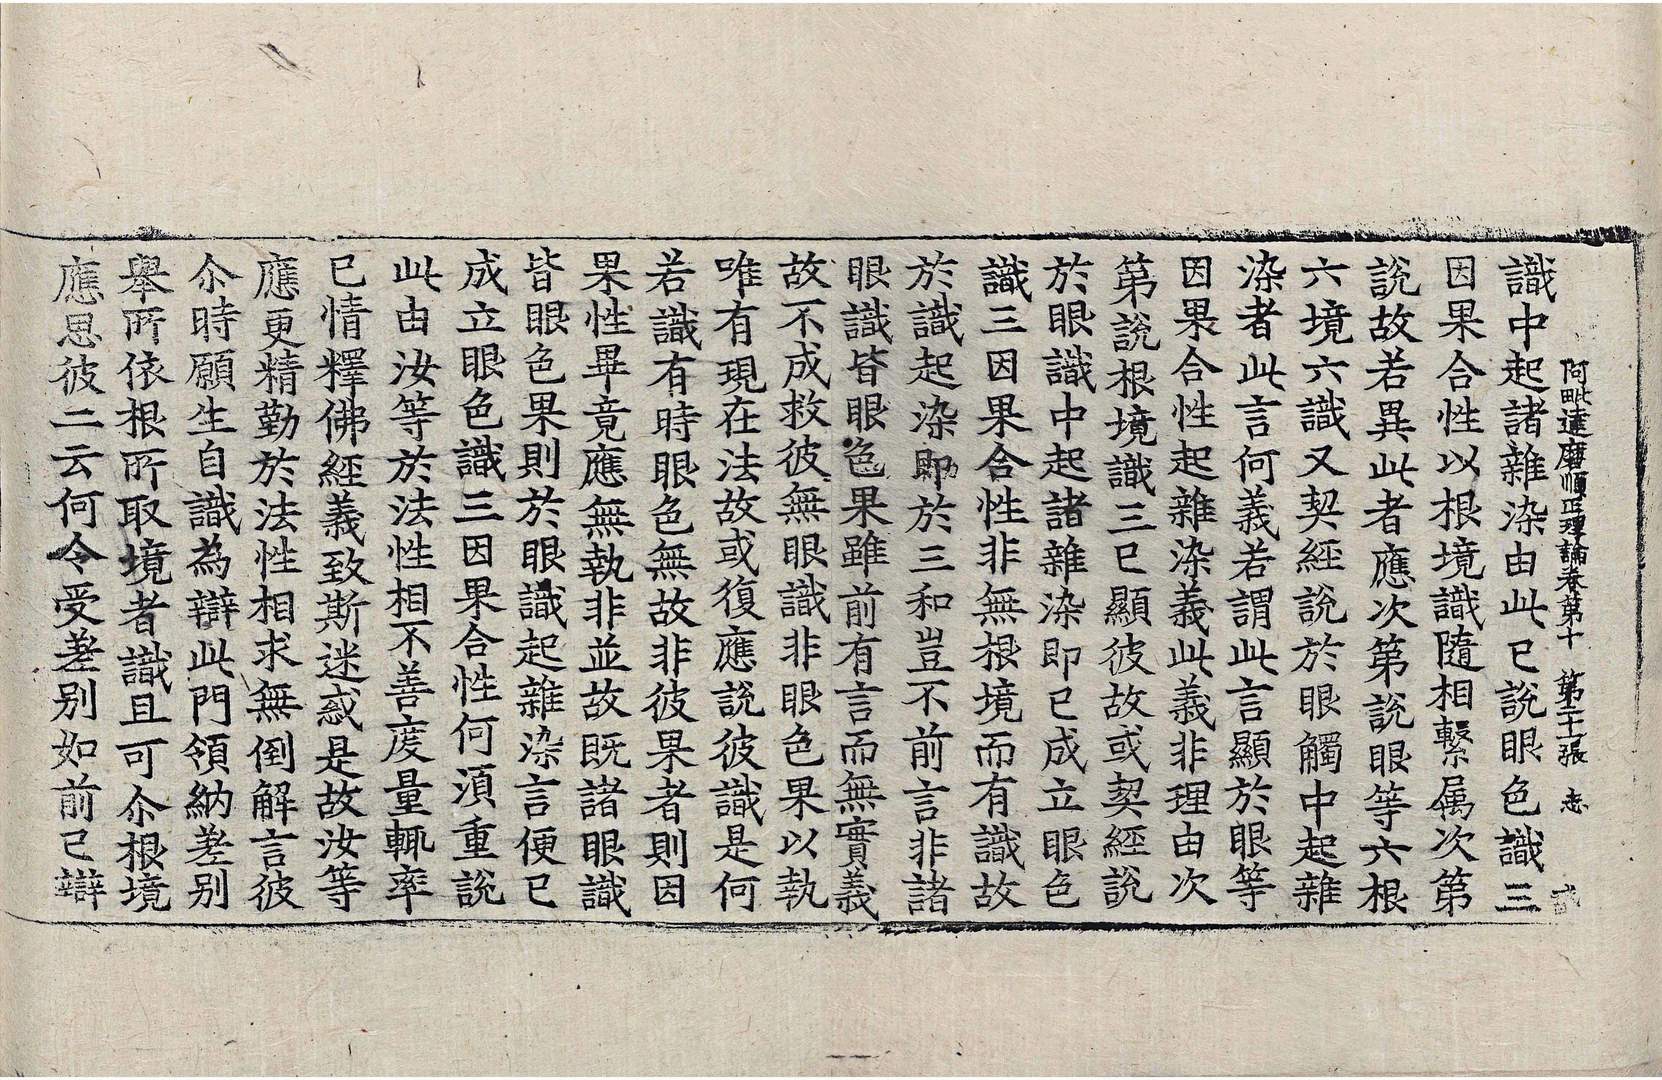 阿毗達磨順正理論卷第十　第二十一張　志
識中起諸雜染由此已說眼色識三
因果合性以根境識隨相繫属次第
說故若異此者應次第說眼等六根
六境六識又契經說於眼觸中起雜
染者此言何義若謂此言顯於眼等
因果合性起雜染義此義非理由次
第說根境識三已顯彼故或契經說
於眼識中起諸雜染即已成立眼色
識三因果合性非無根境而有識故
於識起染即於三和豈不前言非諸
眼識皆眼色果雖前有言而無實義
故不成救彼無眼識非眼色果以執
唯有現在法故或復應說彼識是何
若識有時眼色無故非彼果者則因
果性畢竟應無執非並故既諸眼識
皆眼色果則於眼識起雜染言便已
成立眼色識三因果合性何湏重說
此由汝等於法性相不善度量輒率
已情釋佛經義致斯迷惑是故汝等
應更精勤於法性相求無倒解言彼
尒時願生自識為辯此門領納差别
舉所依根所取境者識且可尒根境
應思彼二云何令受差别如前已辯